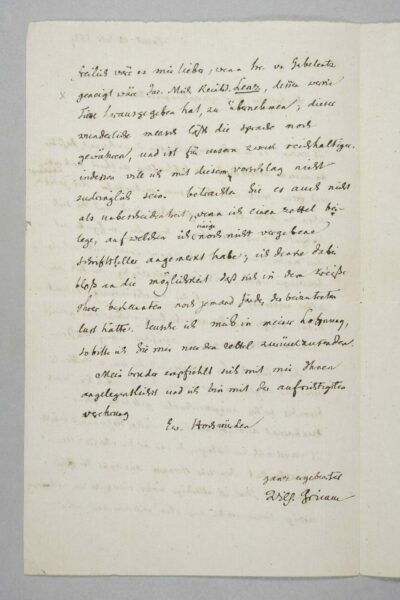 freilich wäre es mir lieber, wenn Hr. v. Gabelentz
geneigt wäre Jac. Mich. Reinh. Lenz, dessen werke
Tieck herausgegeben hat, zu übernehmen; dieser
wunderliche mensch läßt die sprache noch
gewähren, und ist für unsern zweck reichhaltiger.
indessen will ich mit diesem vorschlag nicht
zudringlich sein. betrachten Sie es auch nicht
als unbescheidenheit, wenn ich einen zettel bei-
lege, auf welchem ich einige noch nicht vergebene
schriftsteller angemerkt habe; ich denke dabei
bloß an die möglichkeit daß sich in dem kreiße
Ihrer bekannten noch jemand fände der beizutreten
lust hätte. teusche ich mich in meiner hoffnung,
so bitte ich Sie mir nur den zettel zurückzusenden.
Mein bruder empfiehlt sich mit mir Ihnen
angelegentlichst und ich bin mit der aufrichtigsten
verehrung
Ew. Hochwürden
ganz ergebenster
Wilh. Grimm